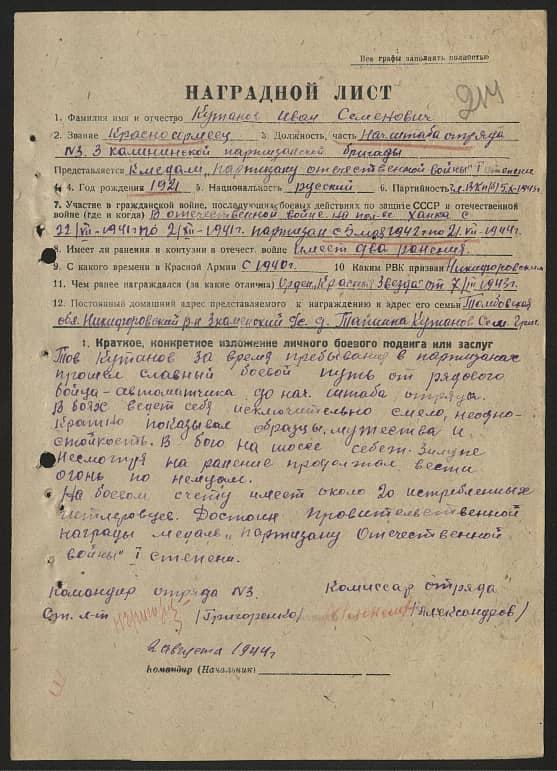 Все графы заполнить полностью
НАГРАДНОЙ ЛИСТ
1. Фамилия имя и отчество Кутанов Иван Семенович
2. Звание Красноармеец 3. Должность, часть Нач. штаба отряда
№3. 3 калининской партизанской бригады
Представляется К медали „партизану отечественной войны" I степени
4. Год рождения 1921 5. Национальность русский 6. Партийность
7. Участие в гражданской войне, последующих боевых действиях по защите СССР и отечественной
войне (где и когда) В отечественной войне на пол-ве Ханка с
22/VII-1941 г по 2/VII-1941г. партизан с 5 мая 1942 г по 21.VII-1944г.
8. Имеет ли ранения и контузии в отечест. войне имеет два ранения.
9. С какого времени в Красной Армии с 1940г. 10 Каким РВК призван Никифоровским
11. Чем ранее награждался (за какие отлична) Орден Красная Звезда от 7/III 1943г.
12. Постоянный домашний адрес представляемого к награждению и адрес его семьи Тамбовская
обл. Никифоровский р-н Знаменский с. д. Кутанов Сем.
1. Краткое, конкретное изложение личного боевого подвига или заслуг
Тов Кутанов за время пребывания в партизанах
прошел славный боевой путь от рядового
бойца-автоматчика до нач. штаба отряда.
В боях ведет себя исключительно смело, неодно-
кратно показывал образцы, мужества и
стойкость. В бою на шоссе Себеж-Зилупе
несмотря на ранение продолжал вести
огонь по немцам.
На боевом счету имеет около 20 истребленных
гитлеровцев. Достоин правительственной
награды медаль „партизану Отечественной
войны" I степени.
Командир отряда №3. Комиссар отряда
Ст. л-т /Григоренко/ /Александров/
2 августа 1944г
Командир (Начальник)